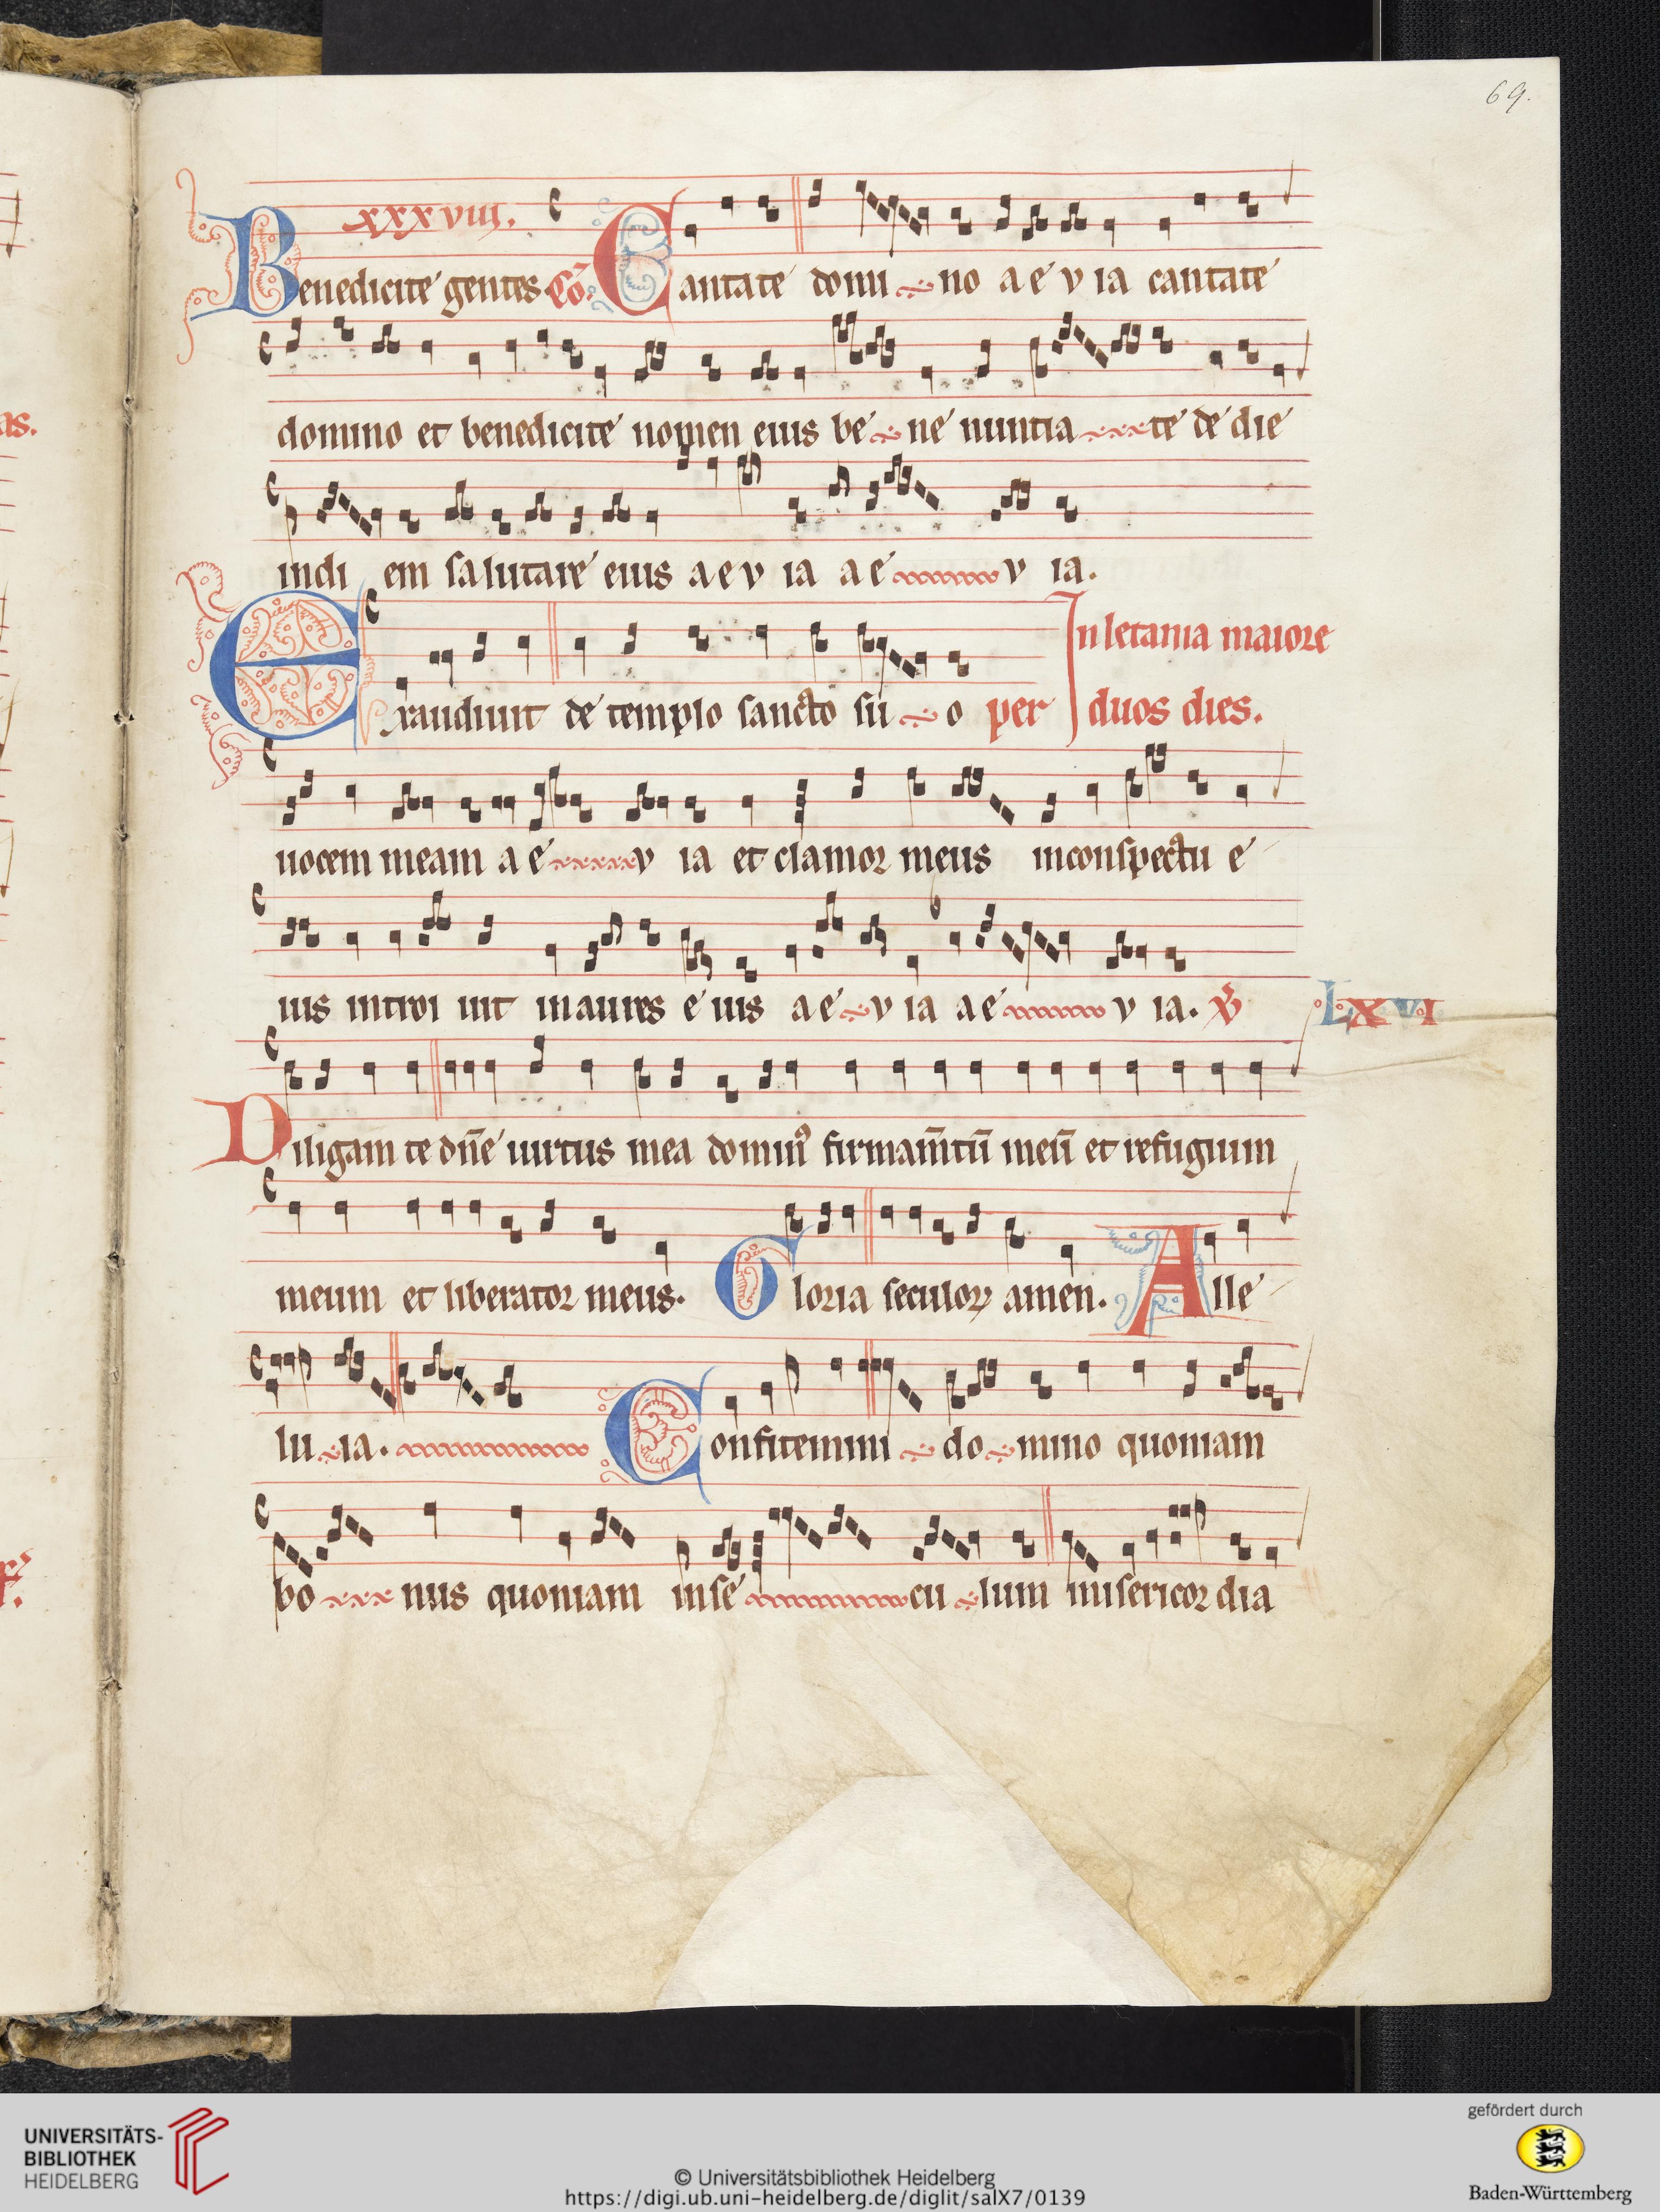 69.
as.
xxxviiij.
Benedicite gentes. Cō. Cantate domino aevia cantate
domino et benedicite nomen eius bene nuntiate de die
indiem salutare eius aevia aevia.
In letania maiore
Exaudiuit de templo sancto suo per duos dies.
uocem meam aevia et clamor meus inconspectu e
ius introiuit inaures eius aevia aevia. ps̄ LXVI
Diligam te dn̄e uirtus mea dominꝰ firmam̄tū meū et refugium
meum et liberator meus. Gloria seculoꝝ amen. Alle
luia. Confitemini domino quoniam
bonus quoniam inseculum misericordia
UNIVERSITÄTS-
BIBLIOTHEK
HEIDELBERG
© Universitätsbibliothek Heidelberg
https://digi.ub.uni-heidelberg.de/diglit/salX7/0139
gefördert durch
Baden-Württemberg